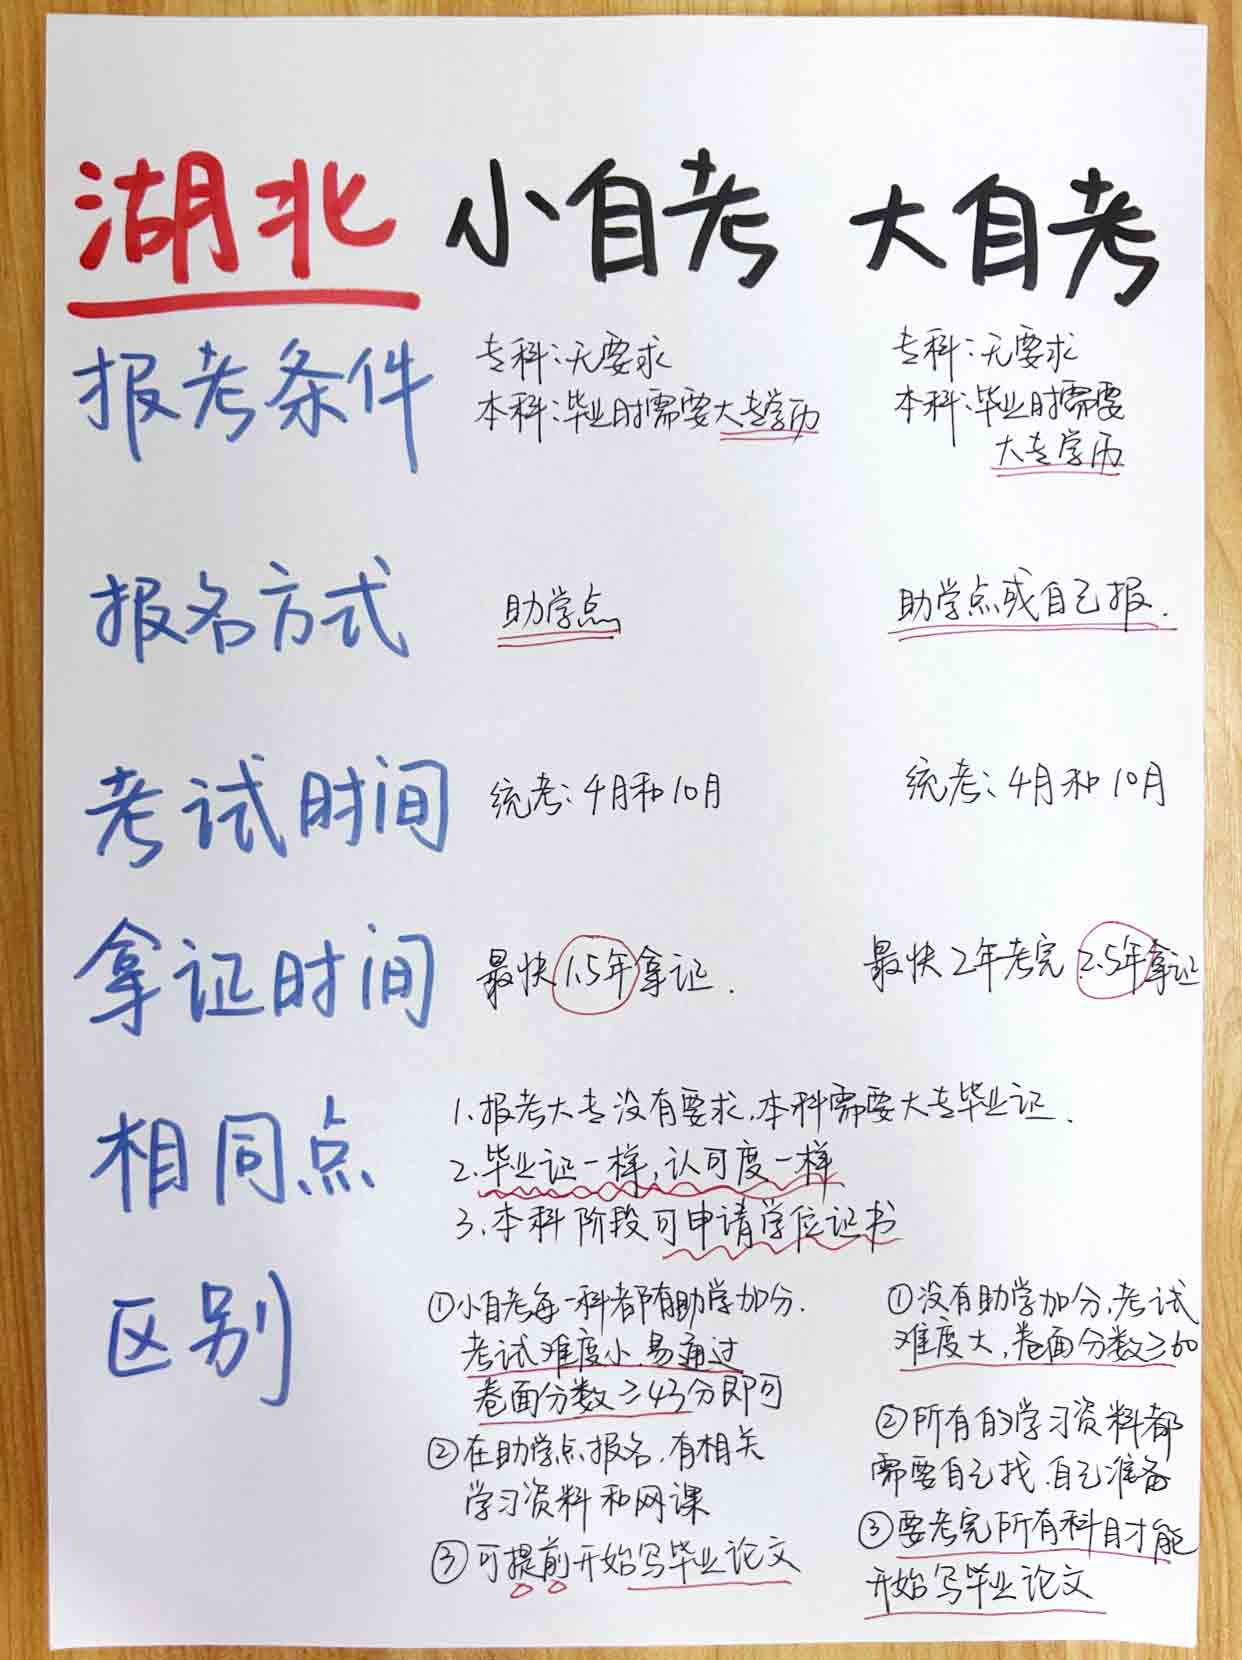 湖北 小自考 大自考
报考条件
专科:无要求
本科:毕业时需要大专学历
专科:无要求
本科:毕业时需要
大专学历
报名方式
助学点
助学点或自己报.
考试时间
统考:4月和10月
统考:4月和10月
拿证时间
最快1.5年拿证.
最快2年考完2.5年拿证
相同点
1.报考大专没有要求,本科需要大专毕业证.
2.毕业证一样,认可度一样
3.本科阶段可申请学位证书
区别
①小自考每一科都有助学加分.
考试难度小.易通过
卷面分数≥43分即可
②在助学点报名.有相关
学习资料和网课
③可提前开始写毕业论文
①没有助学加分,考试
难度大,卷面分数≥60
②所有的学习资料都
需要自己找.自己准备
③要考完所有科目才能
开始写毕业论文